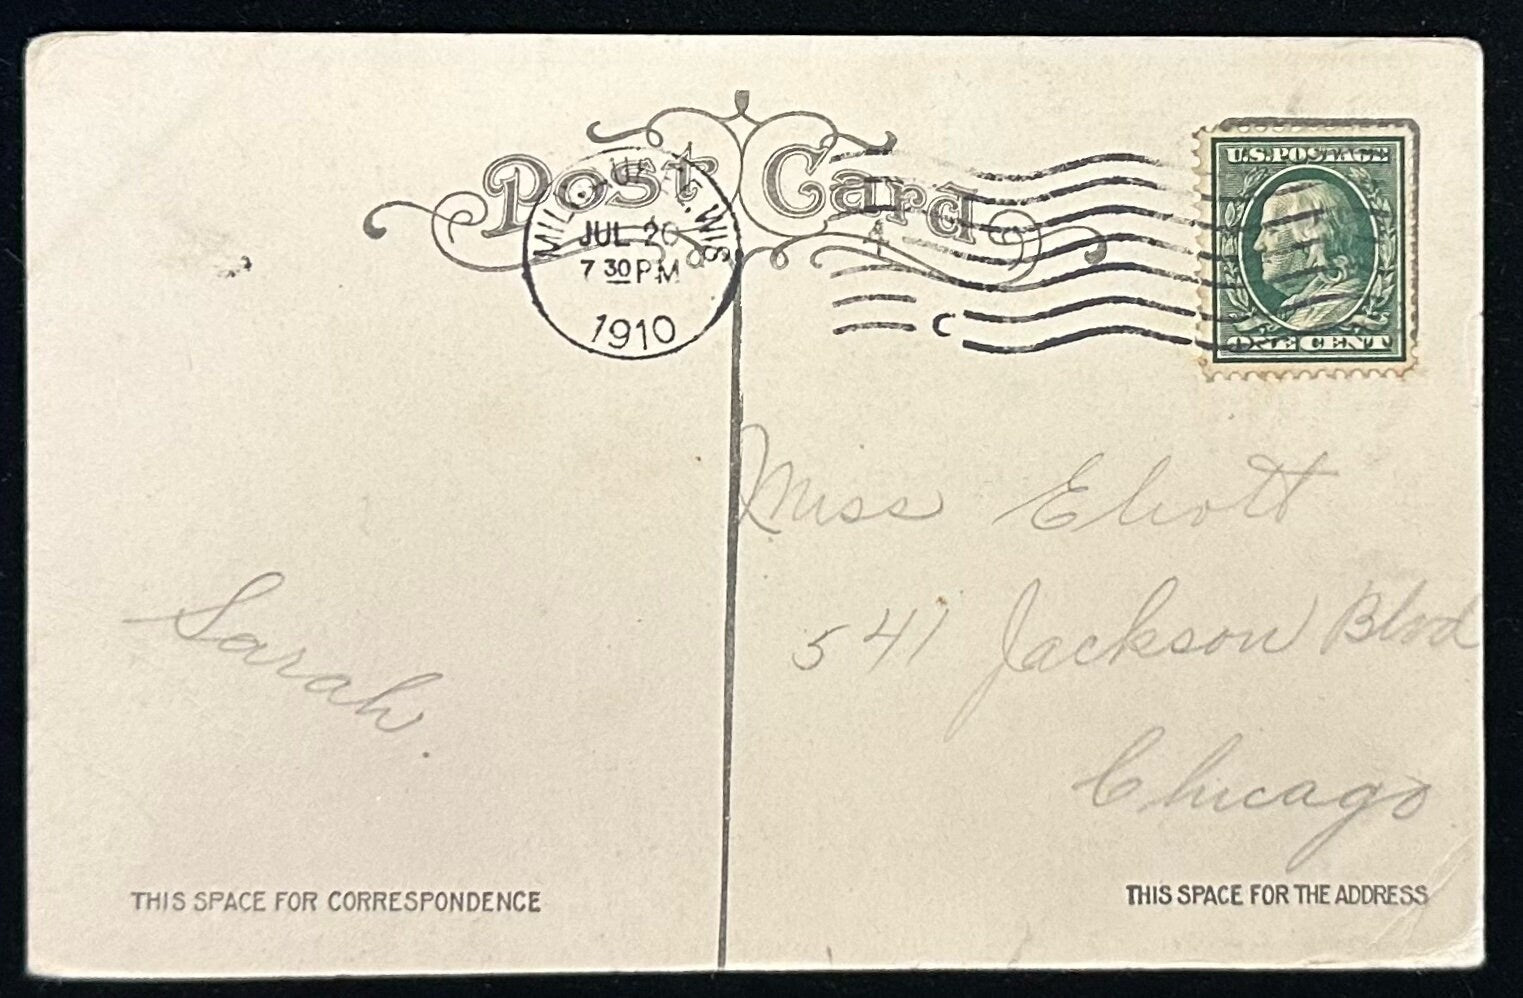 Post Card
MILWAUKEE, WIS
JUL 26
7 30 PM
1910
4
C
U.S. POSTAGE
ONE CENT
Miss Eliott
541 Jackson Blvd
Chicago
Sarah.
THIS SPACE FOR CORRESPONDENCE
THIS SPACE FOR THE ADDRESS